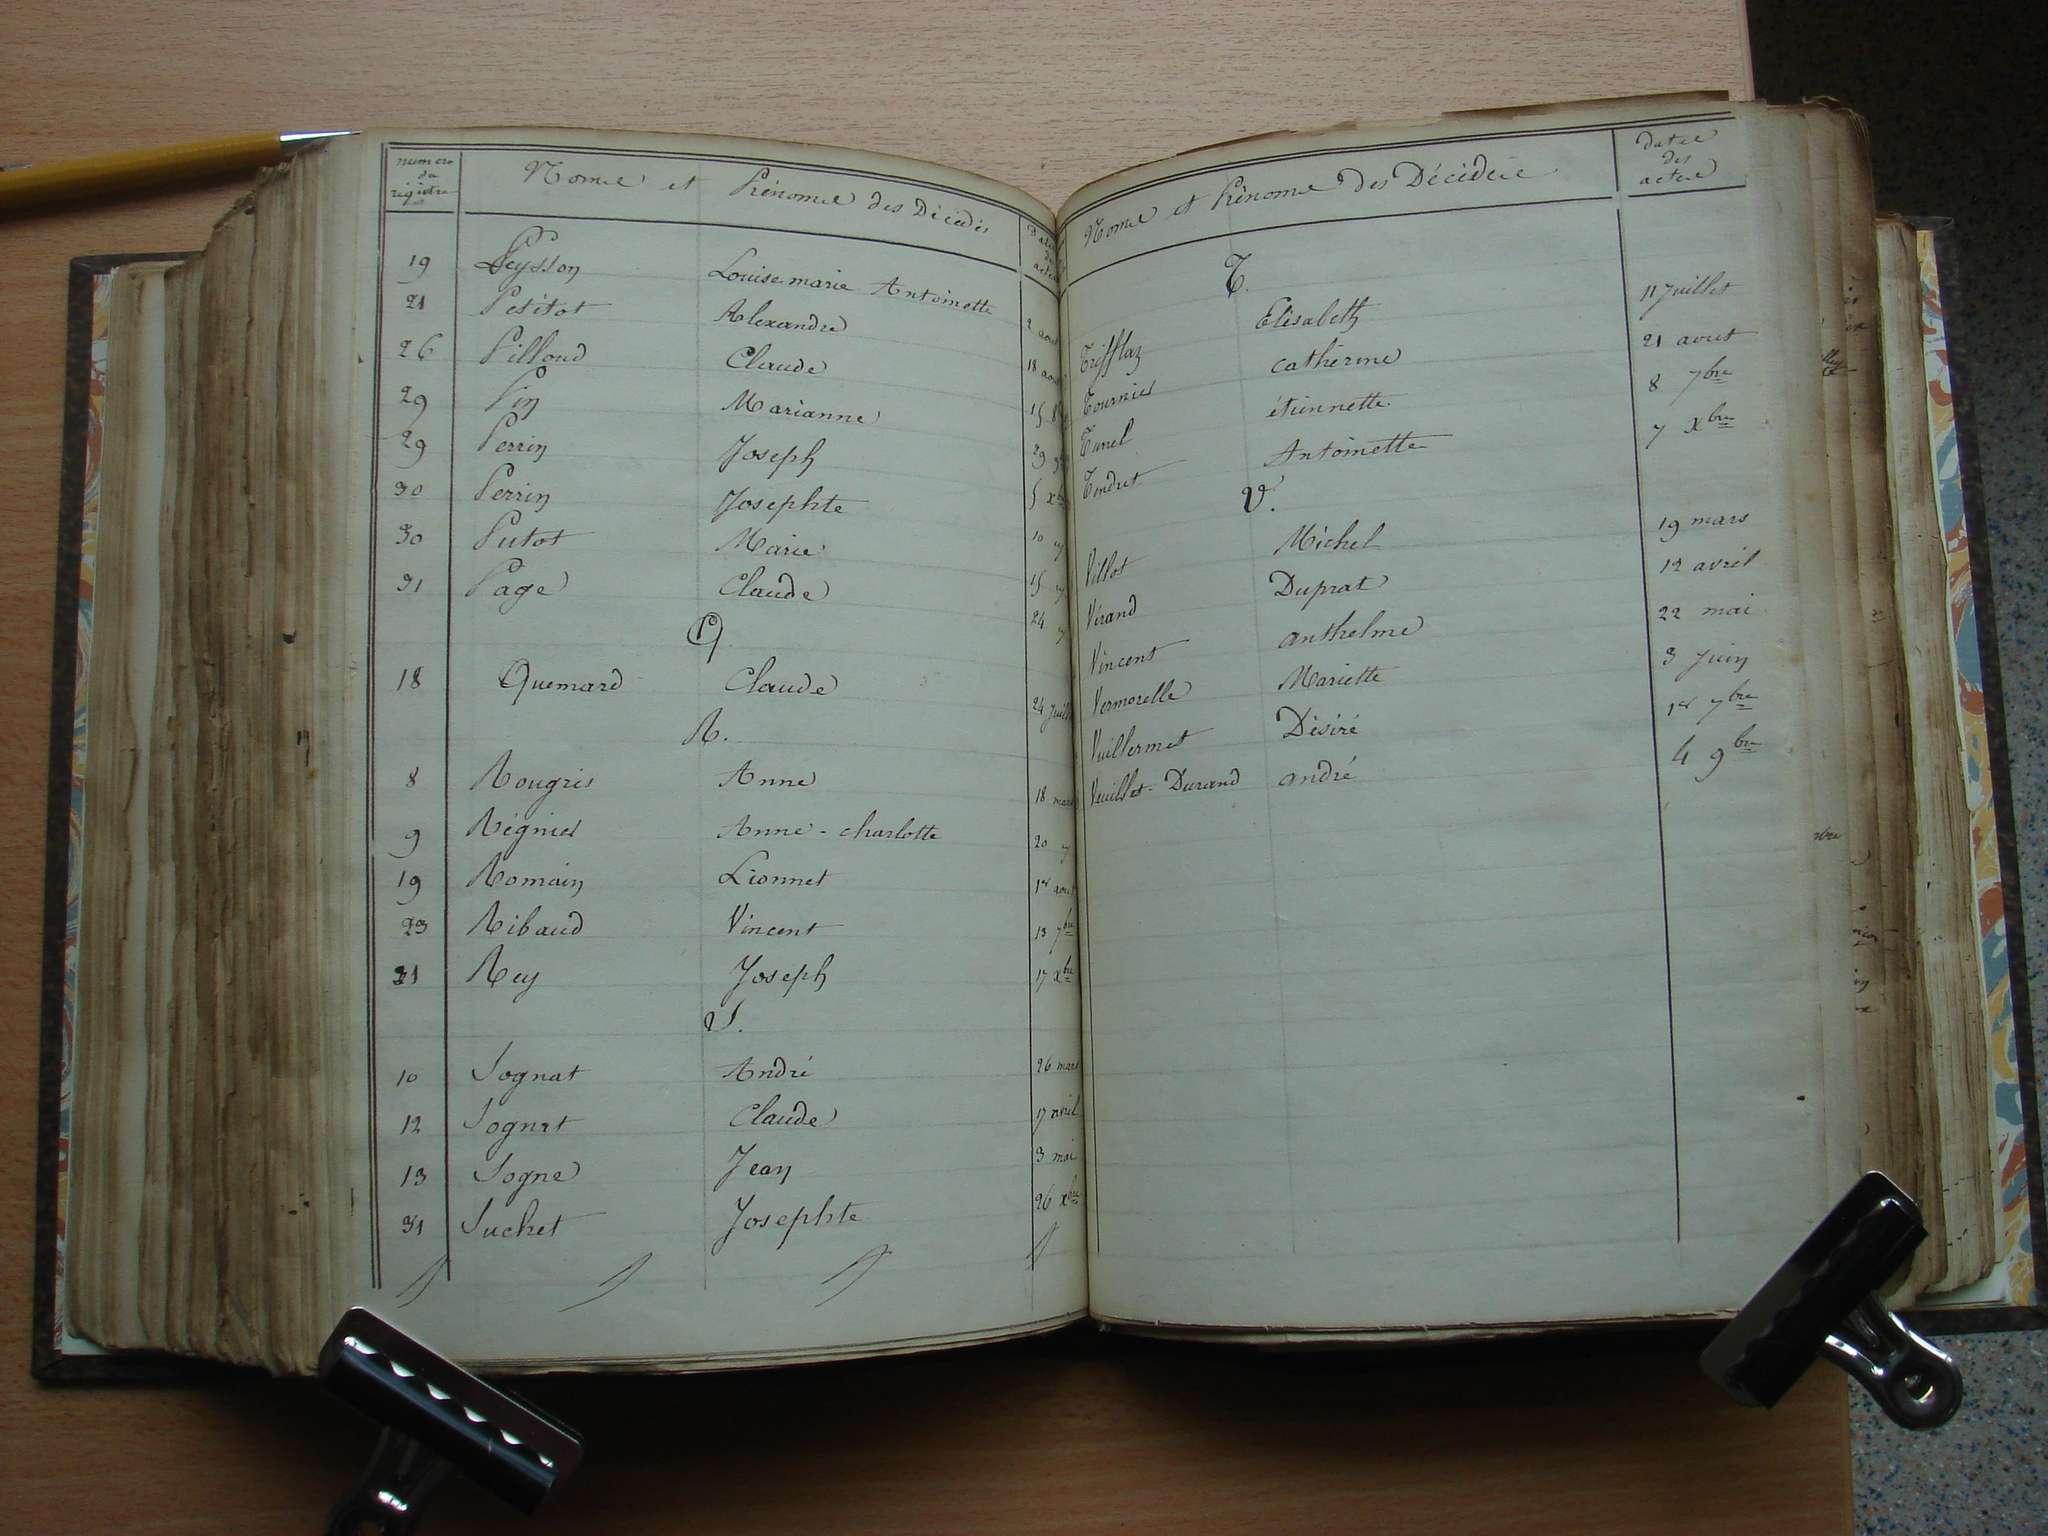 numero du registre
Noms et Prénoms des Décédés
Dates des actes
19 Peysson Louise marie Antoinette 2 aout
21 Petitot Alexandre 18 aout
26 Pilloud Claude 15 8bre
29 Pin Marianne 29 9bre
29 Perrin Joseph 5 xbre
30 Perrin Josephte 10 "
30 Putot Marie 15 "
31 Page Claude 24 "
Q.
18 Quemard Claude 24 Juillet
R.
8 Rougris Anne 18 mars
9 Régnier Anne-charlotte 20 "
19 Romain Lionnet 1er aout
23 Ribaud Vincent 13 7bre
31 Rey Joseph 17 xbre
S.
10 Sognat André 26 mars
12 Sognat Claude 17 avril
13 Sogne Jean 3 mai
31 Suchet Josephte 26 xbre
Noms et Prénoms des Décédés
Dates des actes
T.
Trifflaz Elisabeth 11 Juillet
Tournier catherine 21 aout
Tunel étiennette 8 7bre
Tendret Antoinette 7 xbre
V.
Villot Michel 19 mars
Vérand Duprat 12 avril
Vincent anthelme 22 mai
Vermorelle Mariette 3 Juin
Vuillermet Désiré 1er 7bre
Veuillet-Durand andré 4 9bre